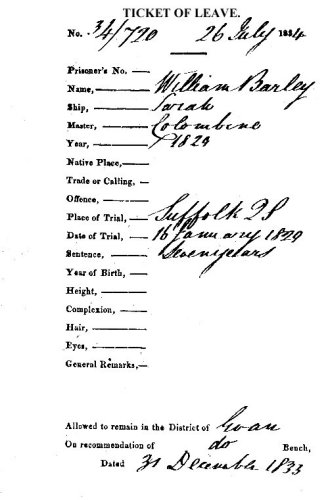 TICKET OF LEAVE.
No. 34/720 26 July 1834
Prisoner's No. —
Name, — William Barley
Ship, — Sarah
Master, — Colombine
Year, — 1829
Native Place, —
Trade or Calling, —
Offence, —
Place of Trial, — Suffolk QS
Date of Trial, — 16 January 1829
Sentence, — Seven years
Year of Birth, —
Height, —
Complexion, —
Hair, —
Eyes, —
General Remarks, —
Allowed to remain in the District of Evan
On recommendation of do Bench,
Dated 31 December 1833